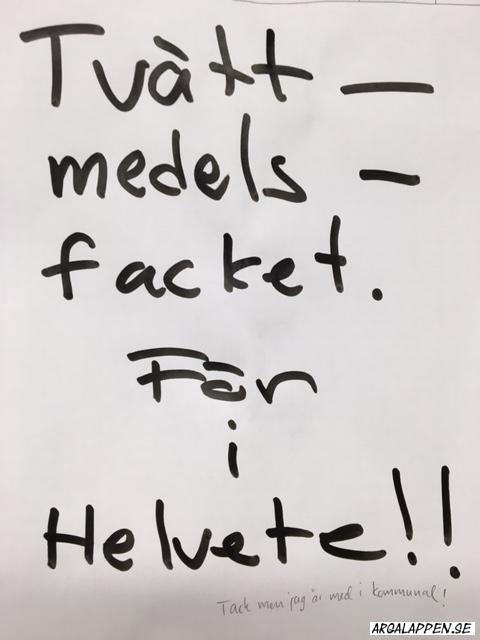 Tvätt -
medels -
facket.
För
i
Helvete!!
Tack men jag är med i kommunal!
ARGALAPPEN.SE